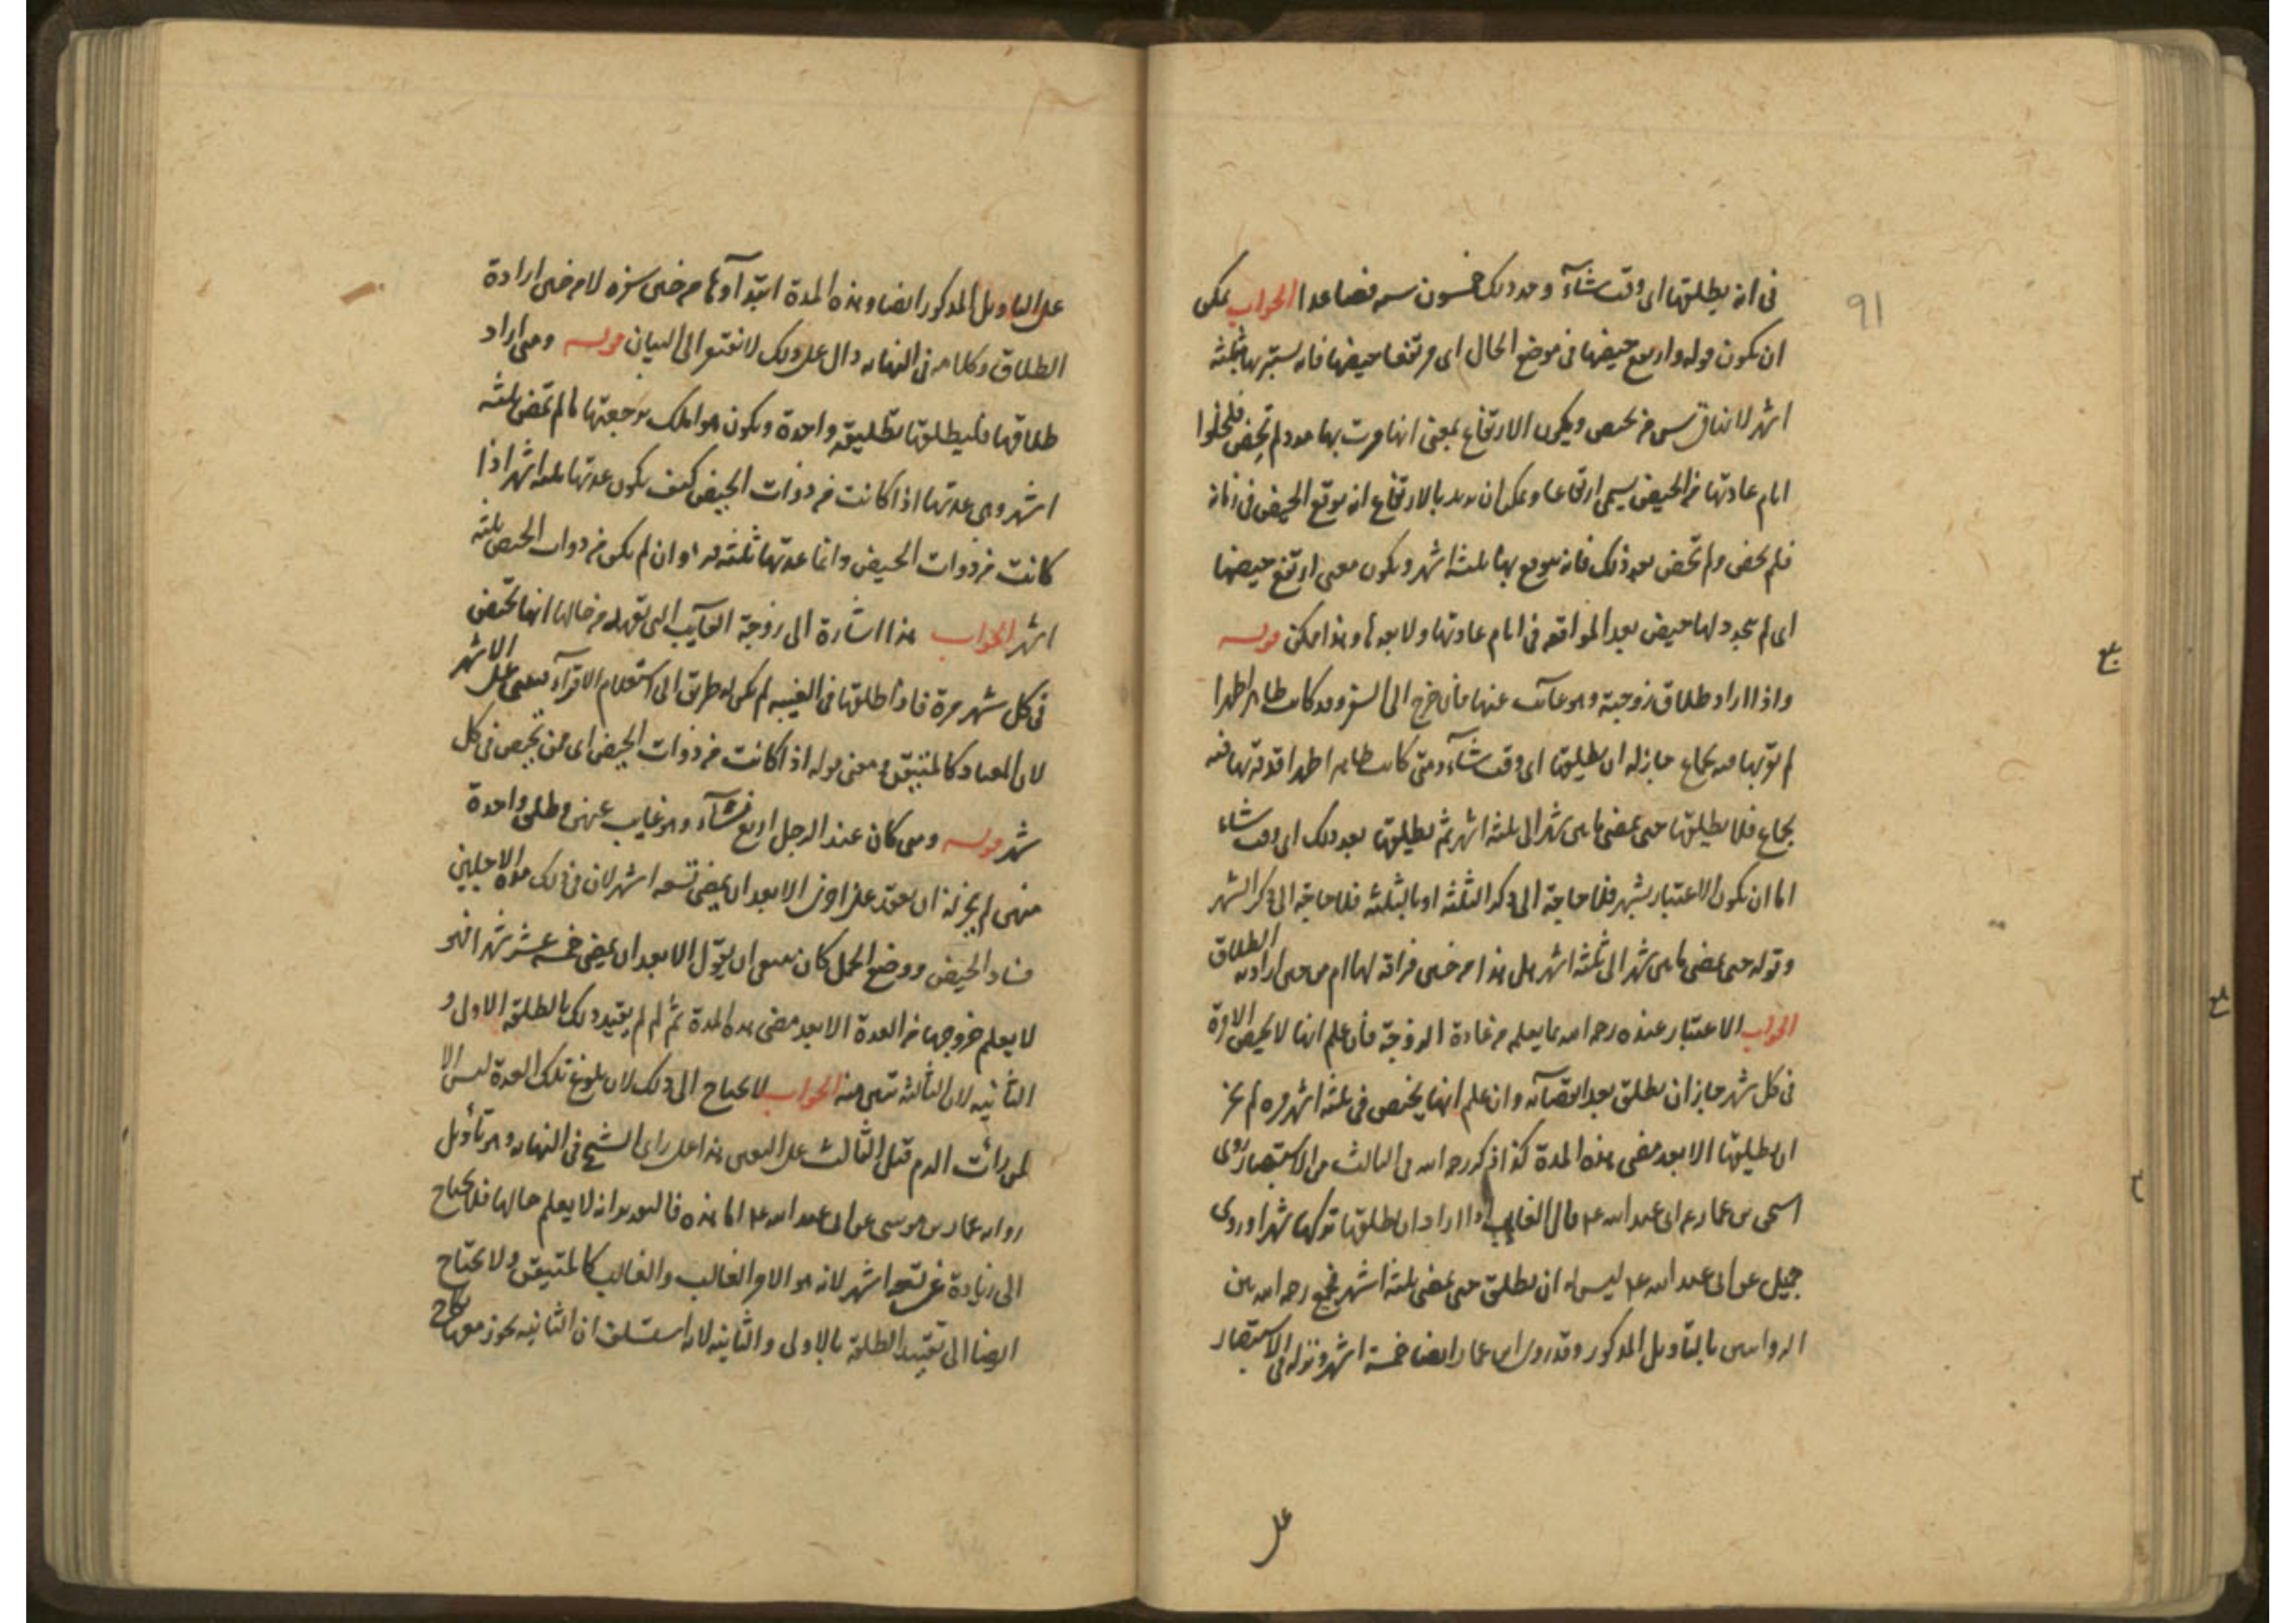 91
فى انه يطلقها اى وقت شآء وحد ذلك خمسون سنه فصاعدا الجواب يمكن
ان يكون قوله وارتفع حيضها فى موضع الحال اى مرتفعا حيضها فانه يستبريها بثلثة
اشهر لاتفاق من تحيض ويكون الارتفاع بمعنى انها مرت بها مدد لم تحض فلخلو
ايام عادتها من الحيض يسمى ارتفاعا ويمكن ان يريد بالارتفاع انه يوقع الحيض فى زمانه
فلم تحض ولم تحض بعد ذلك فانه بها ثلثة اشهر ويكون معنى ارتفع حيضها
اى لم تجدد لها حيض بعد المواقعه فى ايام عادتها ولا بعدها وهذا ممكن قوله
واذا اراد طلاق زوجته وهو غائب عنها فان خرج الى السفر وقد كانت طاهرا طهرا
لم يقربها فيه بجماع جاز له ان يطلقها اى وقت شآء ومتى كانت طاهرا طهرا قد قربها فيه
بجماع فلا يطلقها حتى يمضى ما بين شهر الى ثلثة اشهر ثم يطلقها بعد ذلك اى وقت شاء
اما ان يكون الاعتبار بشهر فلا حاجة الى ذكر الثلثة او بالثلثه فلا حاجة الى ذكر الشهر
وقوله حتى يمضى ما بين شهر الى ثلثة اشهر هل هذا من حين فراقه لها ام من حين ارادته الطلاق
الجواب الاعتبار عنده رحمه الله بما يعلم من عادة الزوجة فان علم انها لا تحيض الا مرة
فى كل شهر جاز ان يطلق بعد انقضآئه وان علم انها تحيض فى ثلثة اشهر مره لم يجز
ان يطلقها الا بعد مضى هذه المدة كذا ذكره رحمه الله فى الثالث من الاستبصار روى
اسحق بن عمار عن ابى عبد الله ع قال الغايب اذا اراد ان يطلقها تركها شهرا وروى
جميل عن ابى عبد الله ع ليس له ان يطلق حتى يمضى ثلثة اشهر فجمع رحمه الله بين
الروايتين بالتاويل المذكور وقد روى ابن عمار ايضا خمسة اشهر ونزله فى الاستبصار
على
على التاويل المذكور ايضا وهذه المدة ابتدآوها من حين سفره لا من حين ارادة
الطلاق وكلامه فى النهايه دال على ذلك لا تفتقر الى البيان قوله ومتى اراد
طلاقها فليطلقها تطليقه واحدة ويكون هو املك برجعتها ما لم تمض ثلثه
اشهر وهى عدتها اذا كانت من ذوات الحيض كيف يكون عدتها ثلثه اشهر اذا
كانت من ذوات الحيض وانما عدتها ثلثه قروء وان لم يكن من ذوات الحيض ثلثه
اشهر الجواب هذا اشارة الى زوجة الغآيب التى يعهد من حالها انها تحيض
فى كل شهر مرة فاذا طلقها فى الغيبه لم يكن له طريق الى استعلام الاقرآء فبنى على الاشهر
لان المعتاد كالمتيقن ومعنى قوله اذا كانت من ذوات الحيض اى ممن تحيض فى كل
شهر قوله ومتى كان عند الرجل اربع نسآء وهو غايب عنهن وطلق واحدة
منهن لم يجز له ان يعقد على اخرى الا بعد ان يمضى تسعه اشهر لان فى ذلك مدة الاجلين
فساد الحيض ووضع الحمل كان ينبغى ان يقول الا بعد ان يمضى خمسه عشر شهرا فهو
لا يعلم خروجها من العدة الا بعد مضى هذه المدة ثم لم لم يقيد ذلك بالطلقه الاولى و
الثانيه لان الثالثه تبين منه الجواب لا يحتاج الى ذلك لان بلوغ تلك العدة ليس الا
لمن رأت الدم قبل الثالث على التعيين هذا على راى الشيخ فى النهايه وهو تأويل
روايه عمار بن موسى عن ابى عبد الله ع اما هذه فالتقدير انه لا يعلم حالها فلا يحتاج
الى زيادة عن تسعه اشهر لانه هو الامر الغالب والغالب كالمتيقن ولا يحتاج
ايضا الى تقييد الطلقة بالاولى والثانيه لانه استسلف ان الثانيه يجوز معها نكاح